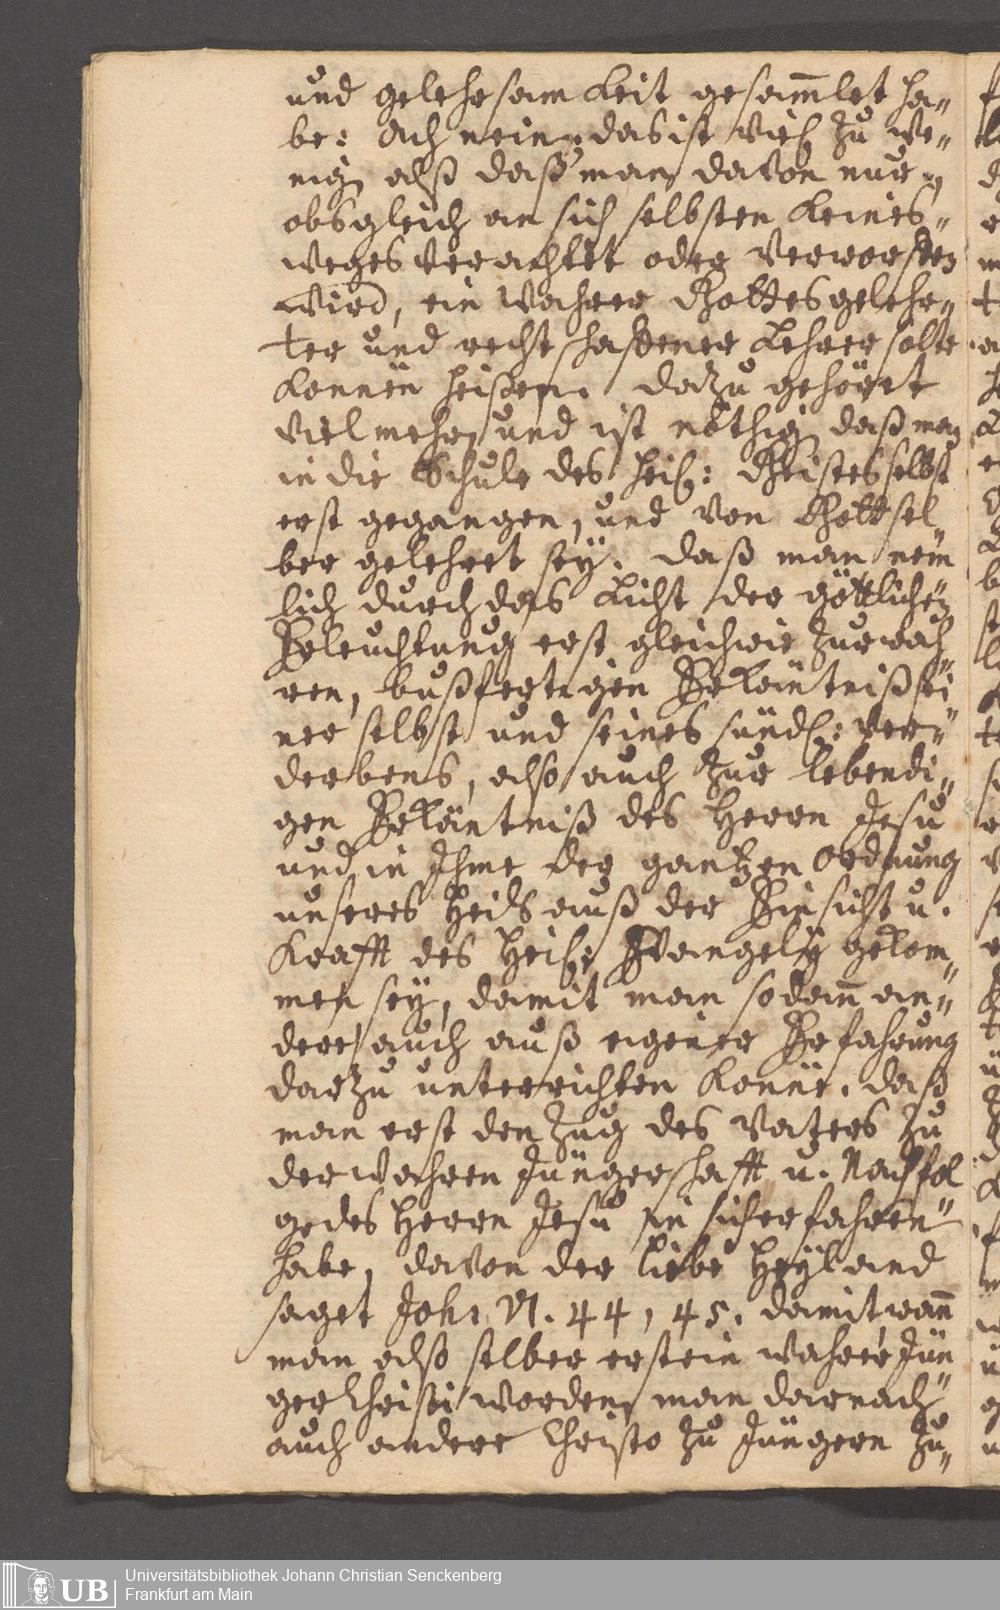 und gelehrsamkeit gesam̅let ha„
be: Ach nein, das ist viel zu we„
nig, alß daß man davon nur,
obs gleich an sich selbsten keines„
weges verachtet oder verworffen
wird, ein wahrer Gottesgelehr„
ter und rechtschaffener Lehrer solte
können heißen. dazu gehöret
vielmehr, und ist nöthig daß man
in die Schule des heil: Geistes selbst
erst gegangen, und von Gott sel„
ber gelehret seÿ. daß man nem
lich durch das Licht der göttlichen
Erleuchtung erst gleichwie zur wah„
ren, bußfertigen Erkäntniß sei„
ner selbst und seines sündl: ver„
derbens, also auch zur lebendi„
gen Erkäntniß des Herrn Jesu
und in Ihme der gantzen Ordnung
unseres Heils auß der Einsicht u.
Krafft des Heil: Evangelÿ gekom„
men seÿ, damit man sodan̅ an„
dere auch auß eigener Erfahrung
darzu unterrichten könne. daß
man erst den Zug des Vaters zu
der wahren Jüngerschafft u. Nachfol„
ge des Herrn Jesu an sich erfahren
habe, davon der liebe Heÿland
saget Joh: VI. 44, 45. damit wan̅
man also selber erst ein wahrer Jün„
ger Christi worden, man darnach
auch andere Christo zu Jüngern zu„
UB
Universitätsbibliothek Johann Christian Senckenberg
Frankfurt am Main